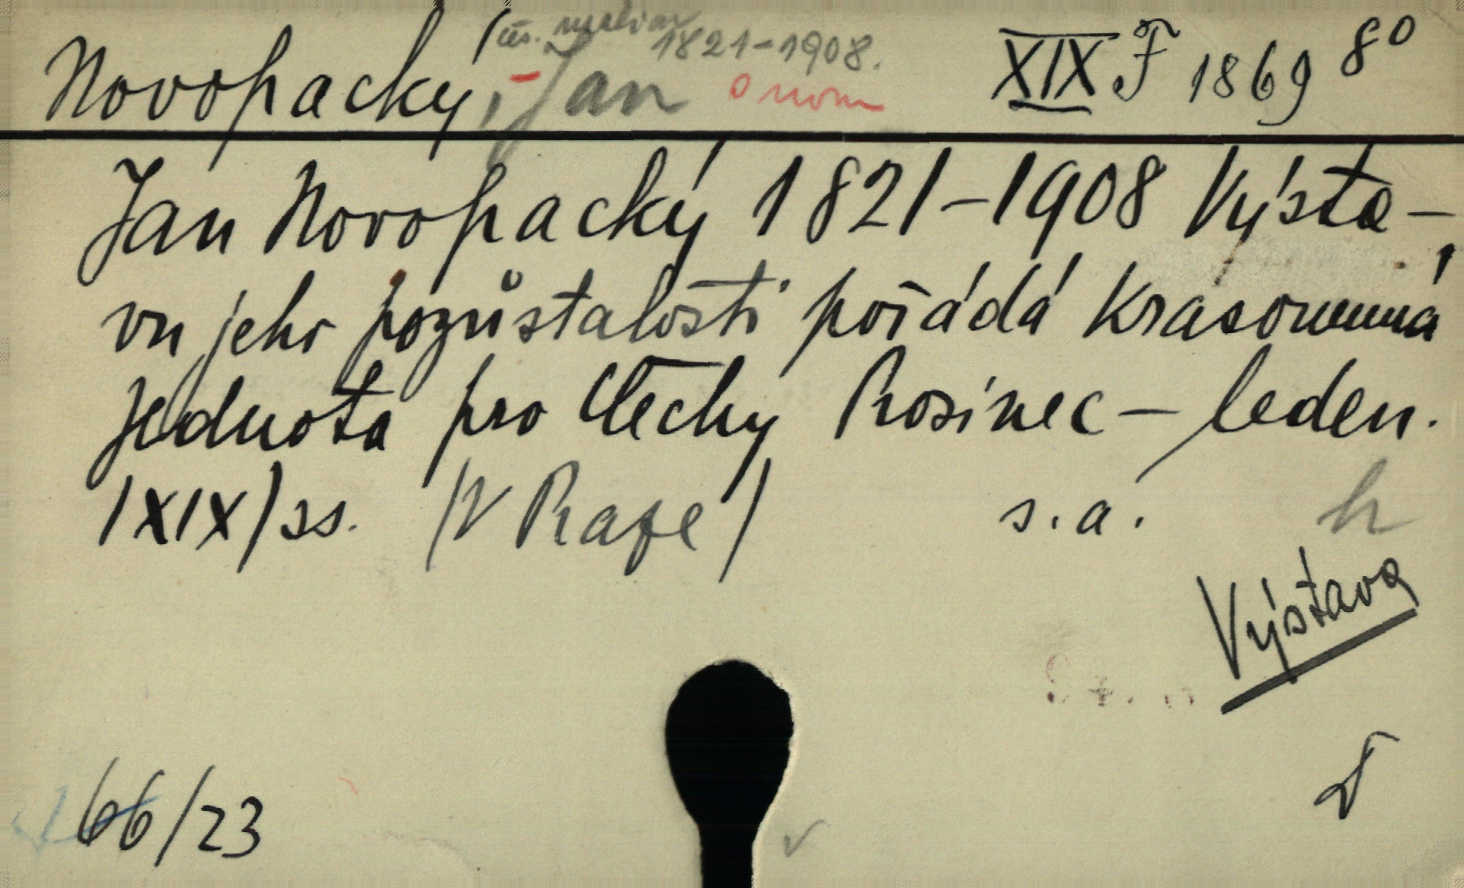 Novopacký, Jan (čes. malíř 1821-1908. o nom XIX F 1869 8°
Jan Novopacký 1821-1908 Výsta-
vu jeho pozůstalosti pořádá Krasoumná
Jednota pro Čechy Prosinec - leden.
(XIX) ss. (V Praze) s. a.
Výstava
66/23